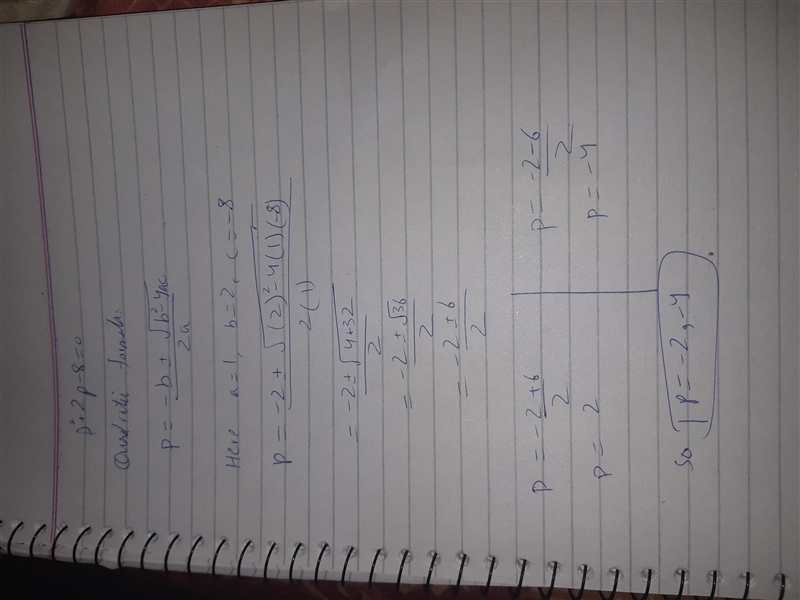 p²+2p-8=0
Quadratic formula:
p = -b ± √b²-4ac / 2a
Here a=1, b=2, c=-8
p = -2 ± √(2)²-4(1)(-8) / 2(1)
= -2 ± √4+32 / 2
= -2 ± √36 / 2
= -2 ± 6 / 2
p = -2+6 / 2
p = 2
p = -2-6 / 2
p = -4
So p = -2, -4